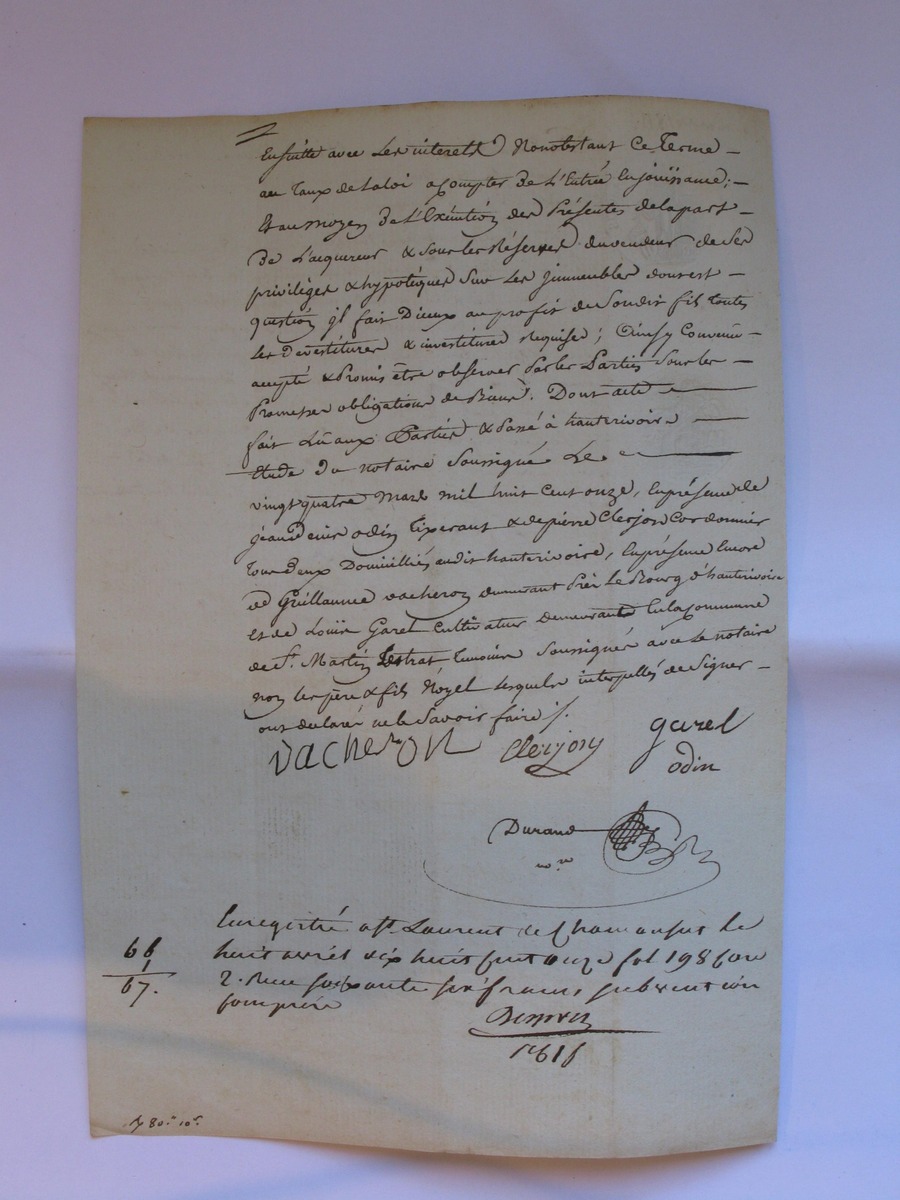 Ensuitte avec les interets Nonobstant Ce Terme
au Taux de la loi a Compter de l'Entrée En jouissance;
Et au moyen de l'Exécution des Présentes de la part
De l'acquereur & sous les Réserves du vendeur de ses
privilèges & hypotèques sur les jmmeubles dont est
question jl fait Dieux au profit de Son dit fils toutes
Les devestitures & investitures Requise; Ainsy Convenu
accepté & Promis être observer Par les Parties sous les
Promesses obligations de Biens. Dont acte
fait Lû aux Parties & Passé à hauterivoire
Etude du notaire Soussigné Le
vingt quatre Mars mil huit Cent onze, En présence de
jean Denis odin Tixerant & de pierre Clerjon Cordonnier
tous Deux Domicilliés audit hauterivoire, En présence Encore
de Guillaume vacheron demeurant Près Le Bourg d'hauterivoire
et de Louis Garel Cultivateur demeurant En la Commune
de St. Martin Lestrat temoins Soussignés avec Le notaire
non les père & fils Noyel lesquels interpellés de Signer
ont declaré ne le Savoir faire ./.
vacheron Clerjon garel
odin
Durand
no.re
Enregistré a St Laurent de Chamousset le
huit avril dix huit cent onze fol 198 
2. Reçu soixante six francs, subvention
comprise
66
1
67.